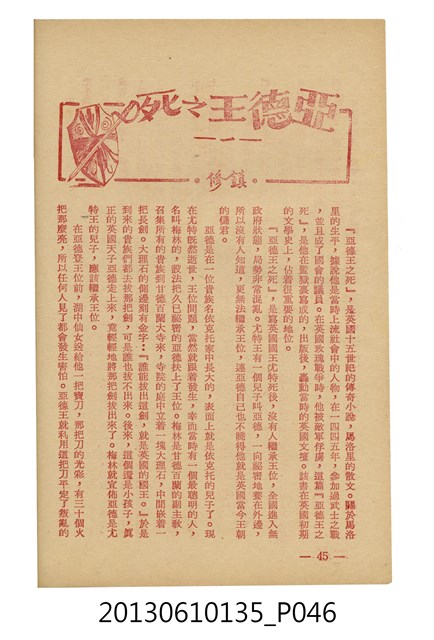 亞德王之死
—一—
·鎮修·
『亞德王之死』，是英國十五世紀的傳奇小說，馬洛里的散文。關於馬洛
里的生平，據說他是當時上流社會中的人物，在一四四五年，參加過武士之戰
，並且成了國會的議員。在英國玫瑰戰爭時，他被敵軍俘虜，這篇『亞德王之
死』，是他在監獄裏寫成的，出版後，轟動當時的英國文壇。該書在英國初期
的文學史上，佔着很重要的地位。
『亞德王之死』，是寫英國國王尤特死後，沒有人繼承王位，全國進入無
政府狀態，局勢非常混亂。尤特王有一個兒子叫亞德，一向秘密地養在外邊，
所以沒有人知道，更無法繼承王位，連亞德自己也不曉得他就是英國當今王朝
的儲君。
亞德是在一位貴族名依克托家中長大的，表面上就是依克托的兒子了。現
在尤特既然逝世，王位問題，當然就跟着發生，幸而當時有一個最聰明的人，
名叫梅林的，設法把久已秘密的亞德扶上了王位。梅林是甘德百蘭的副主教，
召集所有的貴族到甘德百蘭大寺來，寺院的庭中立着一塊大理石，中間嵌着一
把長劍。大理石的側邊刻金字：『誰能拔出這劍，就是英國的國王。』於是
到來的貴族們都去拔那把劍，可是誰也拔不出來。後來，這個還是小孩子，真
正的英國天子亞德走上來，竟輕輕地將那把劍拔出來了。梅林就宣佈亞德是尤
特王的兒子，應該繼承王位。
在亞德登王位前，湖中仙女送給他一把寶刀，那把刀的光彩，有三十個火
把那麼亮，所以任何人見了都會發生害怕。亞德王就利用這把刀平定了叛亂的
— 45 —
20130610135_P046